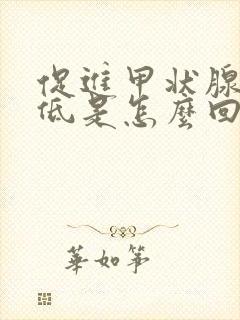 促進甲状腺
低是怎麼回
華如箏